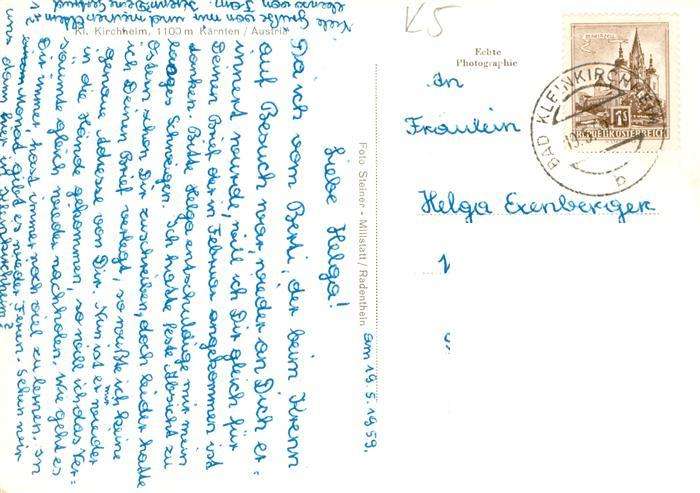 K5
Kl. Kirchheim, 1100 m Kärnten / Austria
Echte
Photographie
Foto Steiner - Millstatt / Radenthein
REPUBLIK ÖSTERREICH
BAD KLEINKIRCHHEIM
b
An
Fräulein
Helga Exenberger
am 19.5.1959.
Liebe Helga!
Da ich vom Berti, der beim Krenn
auf Besuch war, wieder an Dich er-
innert wurde, will ich Dir gleich für
Deinen Brief der in Februar angekommen ist
danken. Bitte Helga entschuldige mir mein
langes Schweigen. Ich hatte feste Absicht zu
Ostern schon Dir zu schreiben, doch leider hatte
ich Deinen Brief verlegt, so wußte ich keine
genaue Adresse von Dir. Nun ist er mir wieder
in die Hände gekommen, so will ich das Ver-
säumte gleich wieder nachholen. Wie geht es
Dir immer, hast immer noch viel zu lernen. In
1 1/2 Monat gibt es wieder Ferien. Sehen wir
uns dann hier in Kleinkirchheim?
Viele Grüße von mir und meinen Eltern